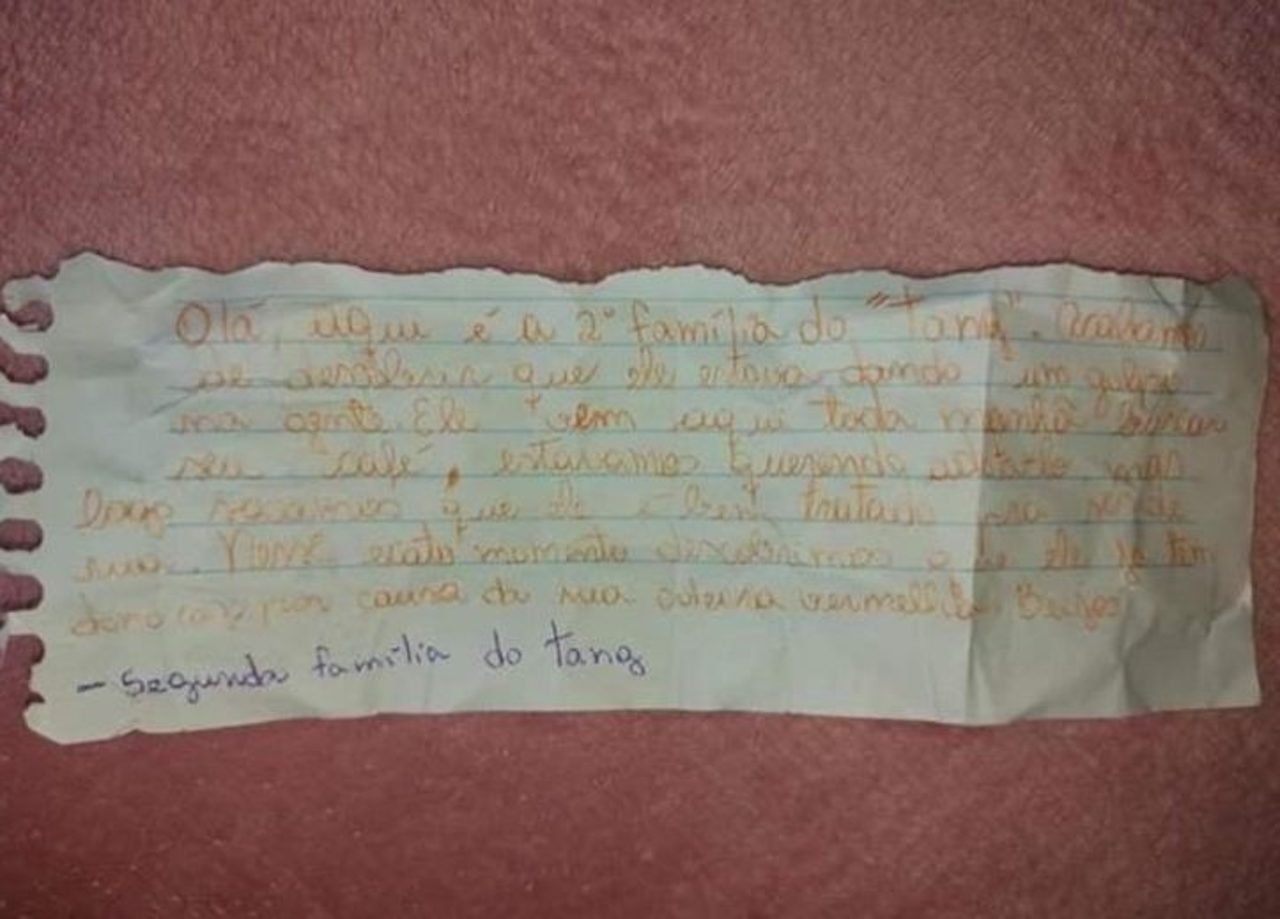 Olá, aqui é a 2° família do "Tang". Acabamos
de descobrir que ele estava dando um golpe
na gente. Ele vem aqui toda manhã buscar
seu café, estavamos querendo adotado mas
logo que ele é bem tratado pra ser de
rua. Nesse exato momento descobrimos que ele ja tem
dono por causa da sua coleira vermelha. Beijos
- Segunda família do tang